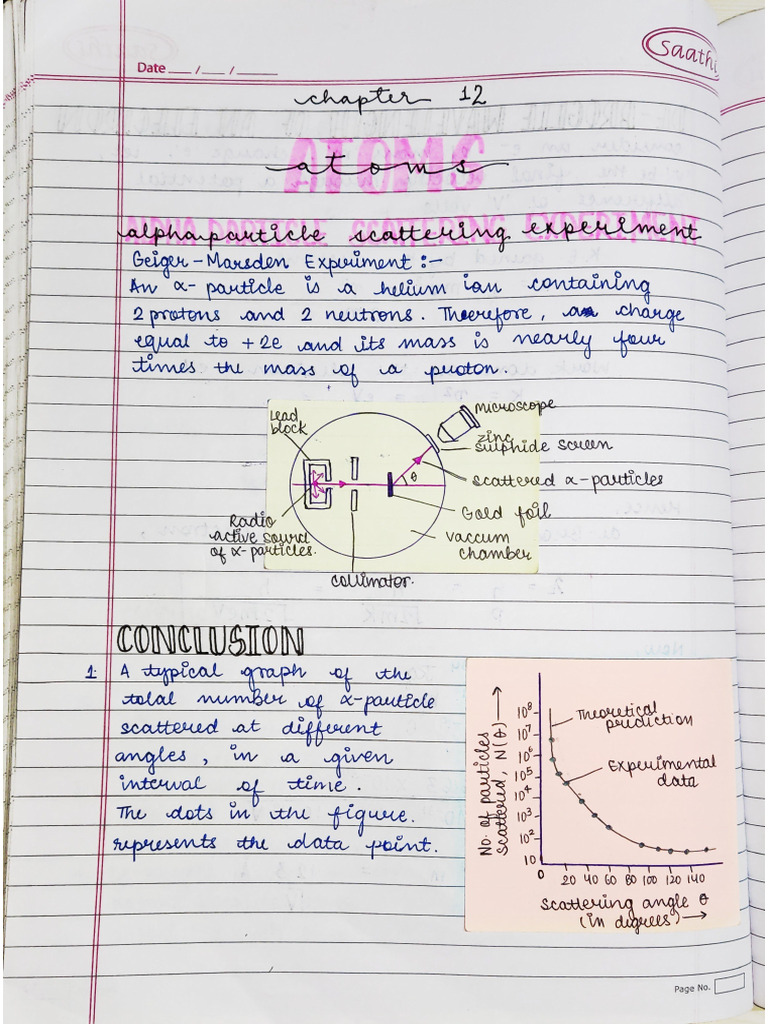 Saathi
Date ___/___/_____
chapter 12
ATOMS
atoms
ALPHA PARTICLE SCATTERING EXPERIMENT
alphaparticle scattering experiment
Geiger-Marsden Expriment :-
An α-particle is a helium ion containing
2 protons and 2 neutrons. Therefore, a charge
equal to +2e and its mass is nearly four
times the mass of a proton.
Lead
block
Microscope
zinc
sulphide screen
scattered α-particles
θ
Gold foil
Radio
active source
of α-particles.
vaccum
chamber
collimator.
CONCLUSION
1. A typical graph of the
total number of α-particle
scattered at different
angles, in a given
interval of time.
The dots in the figure.
represents the data point.
No. of particles
scattered, N(θ) →
10⁸
10⁷
10⁶
10⁵
10⁴
10³
10²
10
Theoretical
prediction
Experimental
data
0 20 40 60 80 100 120 140
Scattering angle θ
(in degrees) →
Page No.